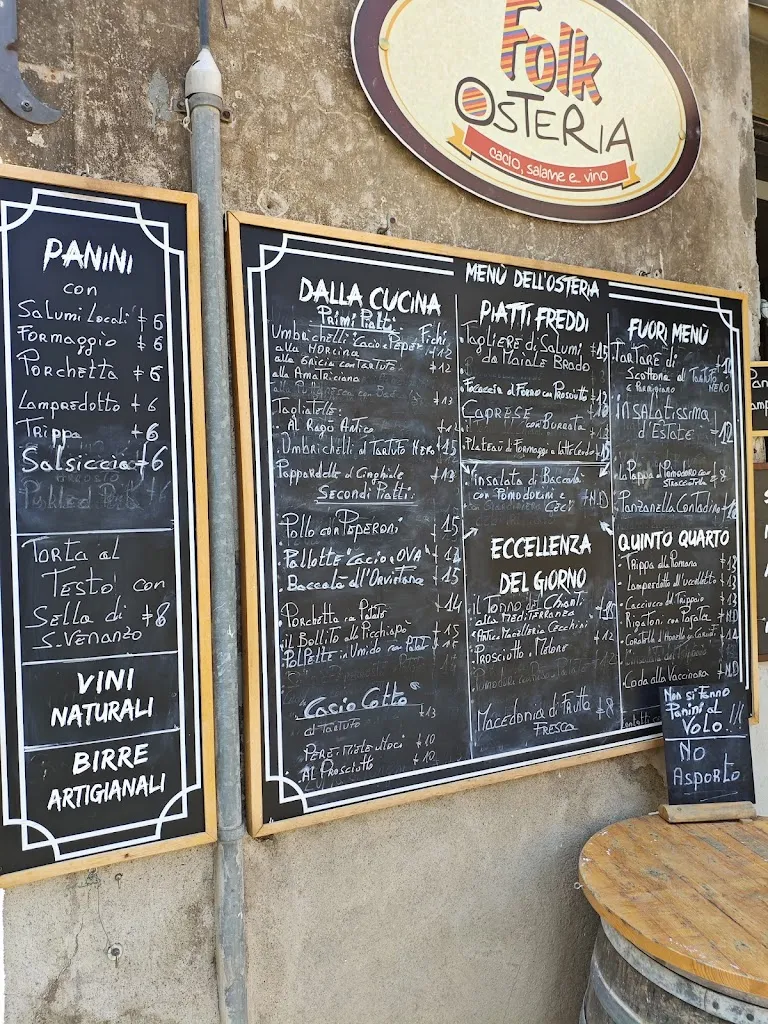 Folk
OSTERIA
cacio, salame e vino
PANINI
con
Salumi Locali € 6
Formaggio € 6
Porchetta € 6
Lampredotto € 6
Trippa € 6
Salsiccia € 6
TORTA al
TESTO con
Sella di € 8
S. VENANZO
VINI
NATURALI
BIRRE
ARTIGIANALI
MENÙ DELL'OSTERIA
DALLA CUCINA
Primi Piatti
Umbrichelli Cacio e Pepe Fichi € 12
alla NORCINA € 12
alla GRICIA con TARTUFO
alla AMATRICIANA
€ 13
Tagliatelle:
AL Ragù Antico
Umbrichelli al TARTUFO NERO € 15
Pappardelle al Cinghiale € 13
Secondi Piatti:
Pollo con PEPERONI 15
Pallotte Cacio e OVA
Baccalà all'Orvietana € 15
Porchetta con Patate € 14
il Bollito alla Picchiapò € 15
Polpette in Umido con Patate
"Cacio Cotto"
al TARTUFO € 13
PERE, Miele e Noci € 10
AL Prosciutto € 10
PIATTI FREDDI
Tagliere di Salumi € 15
da Maiale Brado
Focaccia al Forno con Prosciutto € 12
CAPRESE
con BURRATA
Plateau di Formaggi a latte Crudo € 15
insalata di Baccalà
con Pomodorini e
CECI N.D
ECCELLENZA
DEL GIORNO
il Tonno del Chianti
alla MEDITERRANEA
"Antica Macelleria Cecchini" € 12
Prosciutto e Melone
Macedonia di Frutta € 8
FRESCA
FUORI MENÙ
TARTARE di
Scottona al TARTUFO NERO
e Parmigiano
inSALATissima
d'Estate € 12
La Pappa al Pomodoro con € 8
STRACCIATELLA
PANZANELLA CONTADINA € 10
QUINTO QUARTO
Trippa alla Romana € 13
Lampredotto all'uccelletto € 13
Cacciucco di Trippaio € 13
Rigatoni con Pajata N.D
€ 14
Coda alla Vaccinara N.D
Non si fanno
Panini al
VOLO!!!
NO
Asporto